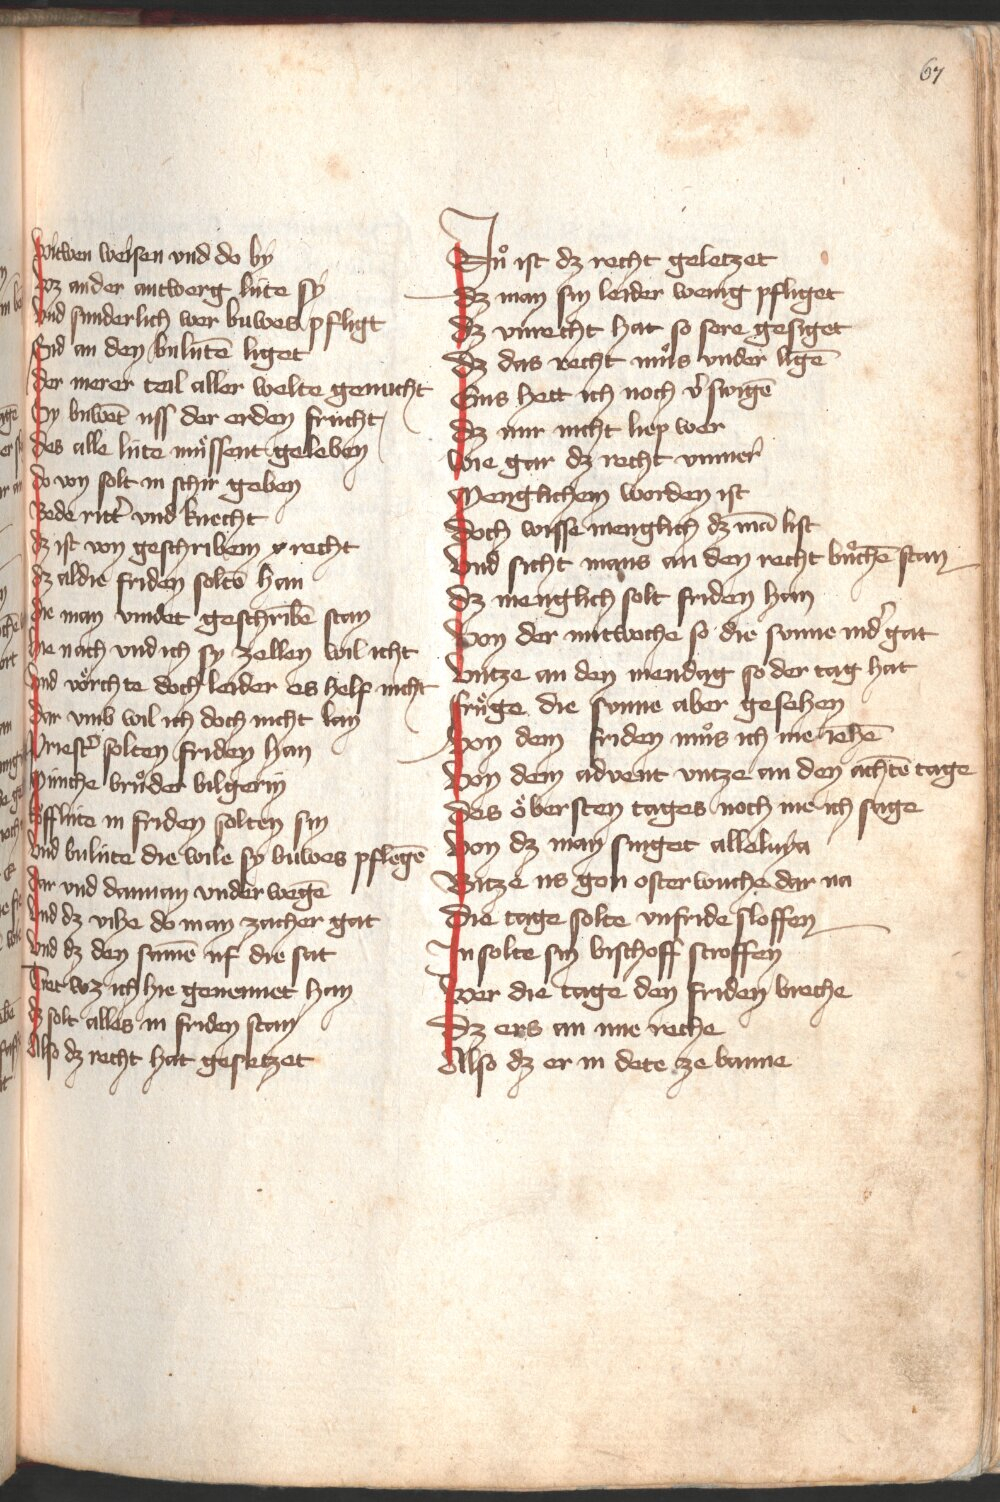 67
witwen weisen vnd do bÿ
wz ander antwerg lüte sÿ
vnd sunderlich wer buwes pfligt
Sid an den bulütē liget
der merer teil aller welte gemacht
Sy buwēt uss der erden frücht
des alle lüte müssent geleben
do von solt in schir geben
Bede ritt' vnd knecht
dz ist von geschribem recht
dz aldie friden soltē han
die man vindet geschribē stan
hie nach vnd ich sy zellen wil icht
vnd vörchte doch leider es helf nicht
dar vmb wil ich doch nicht lan
Priest' solten friden han
Münche brůder bilgerin
kofflüte in friden solten sin
vnd bulüte die wile sy buwes pflegē
dar vnd dannan vnder wegē
vnd dz vihe do man zacher gat
vnd dz den samē uf die sat
Tret wz ich hie genennet han
dz solt alles in friden stan
Also dz recht hat gesetzet
Nů ist dz recht geletzet
dz man sin leider wenig pfliget
dz vnrecht hat so sere gesiget
dz das recht můs vnder ligē
Eins hett ich noch v'swigē
dz mir nicht liep wer
wie gar dz recht vnmer'
Menglichem worden ist
doch wisse menglich dz mā list
vnd sicht mans an den recht bůchē stan
dz menglich solt friden han
Von der mitwoche so die sunne nid' gat
vntze an den mendag so der tag hat
früge die sunne aber gesehen
Von dem friden můs ich me iehē
Von dem advent vntze an den achtē tage
des öbersten tages noch me ich sage
Von dz man singet alleluya
Vntze us gon osterwuche dar na
die tage solte vnfride sloffen
In solte sin bischoff stroffen
wer die tage den friden breche
dz ers an ime reche
Also dz er in dete ze banne